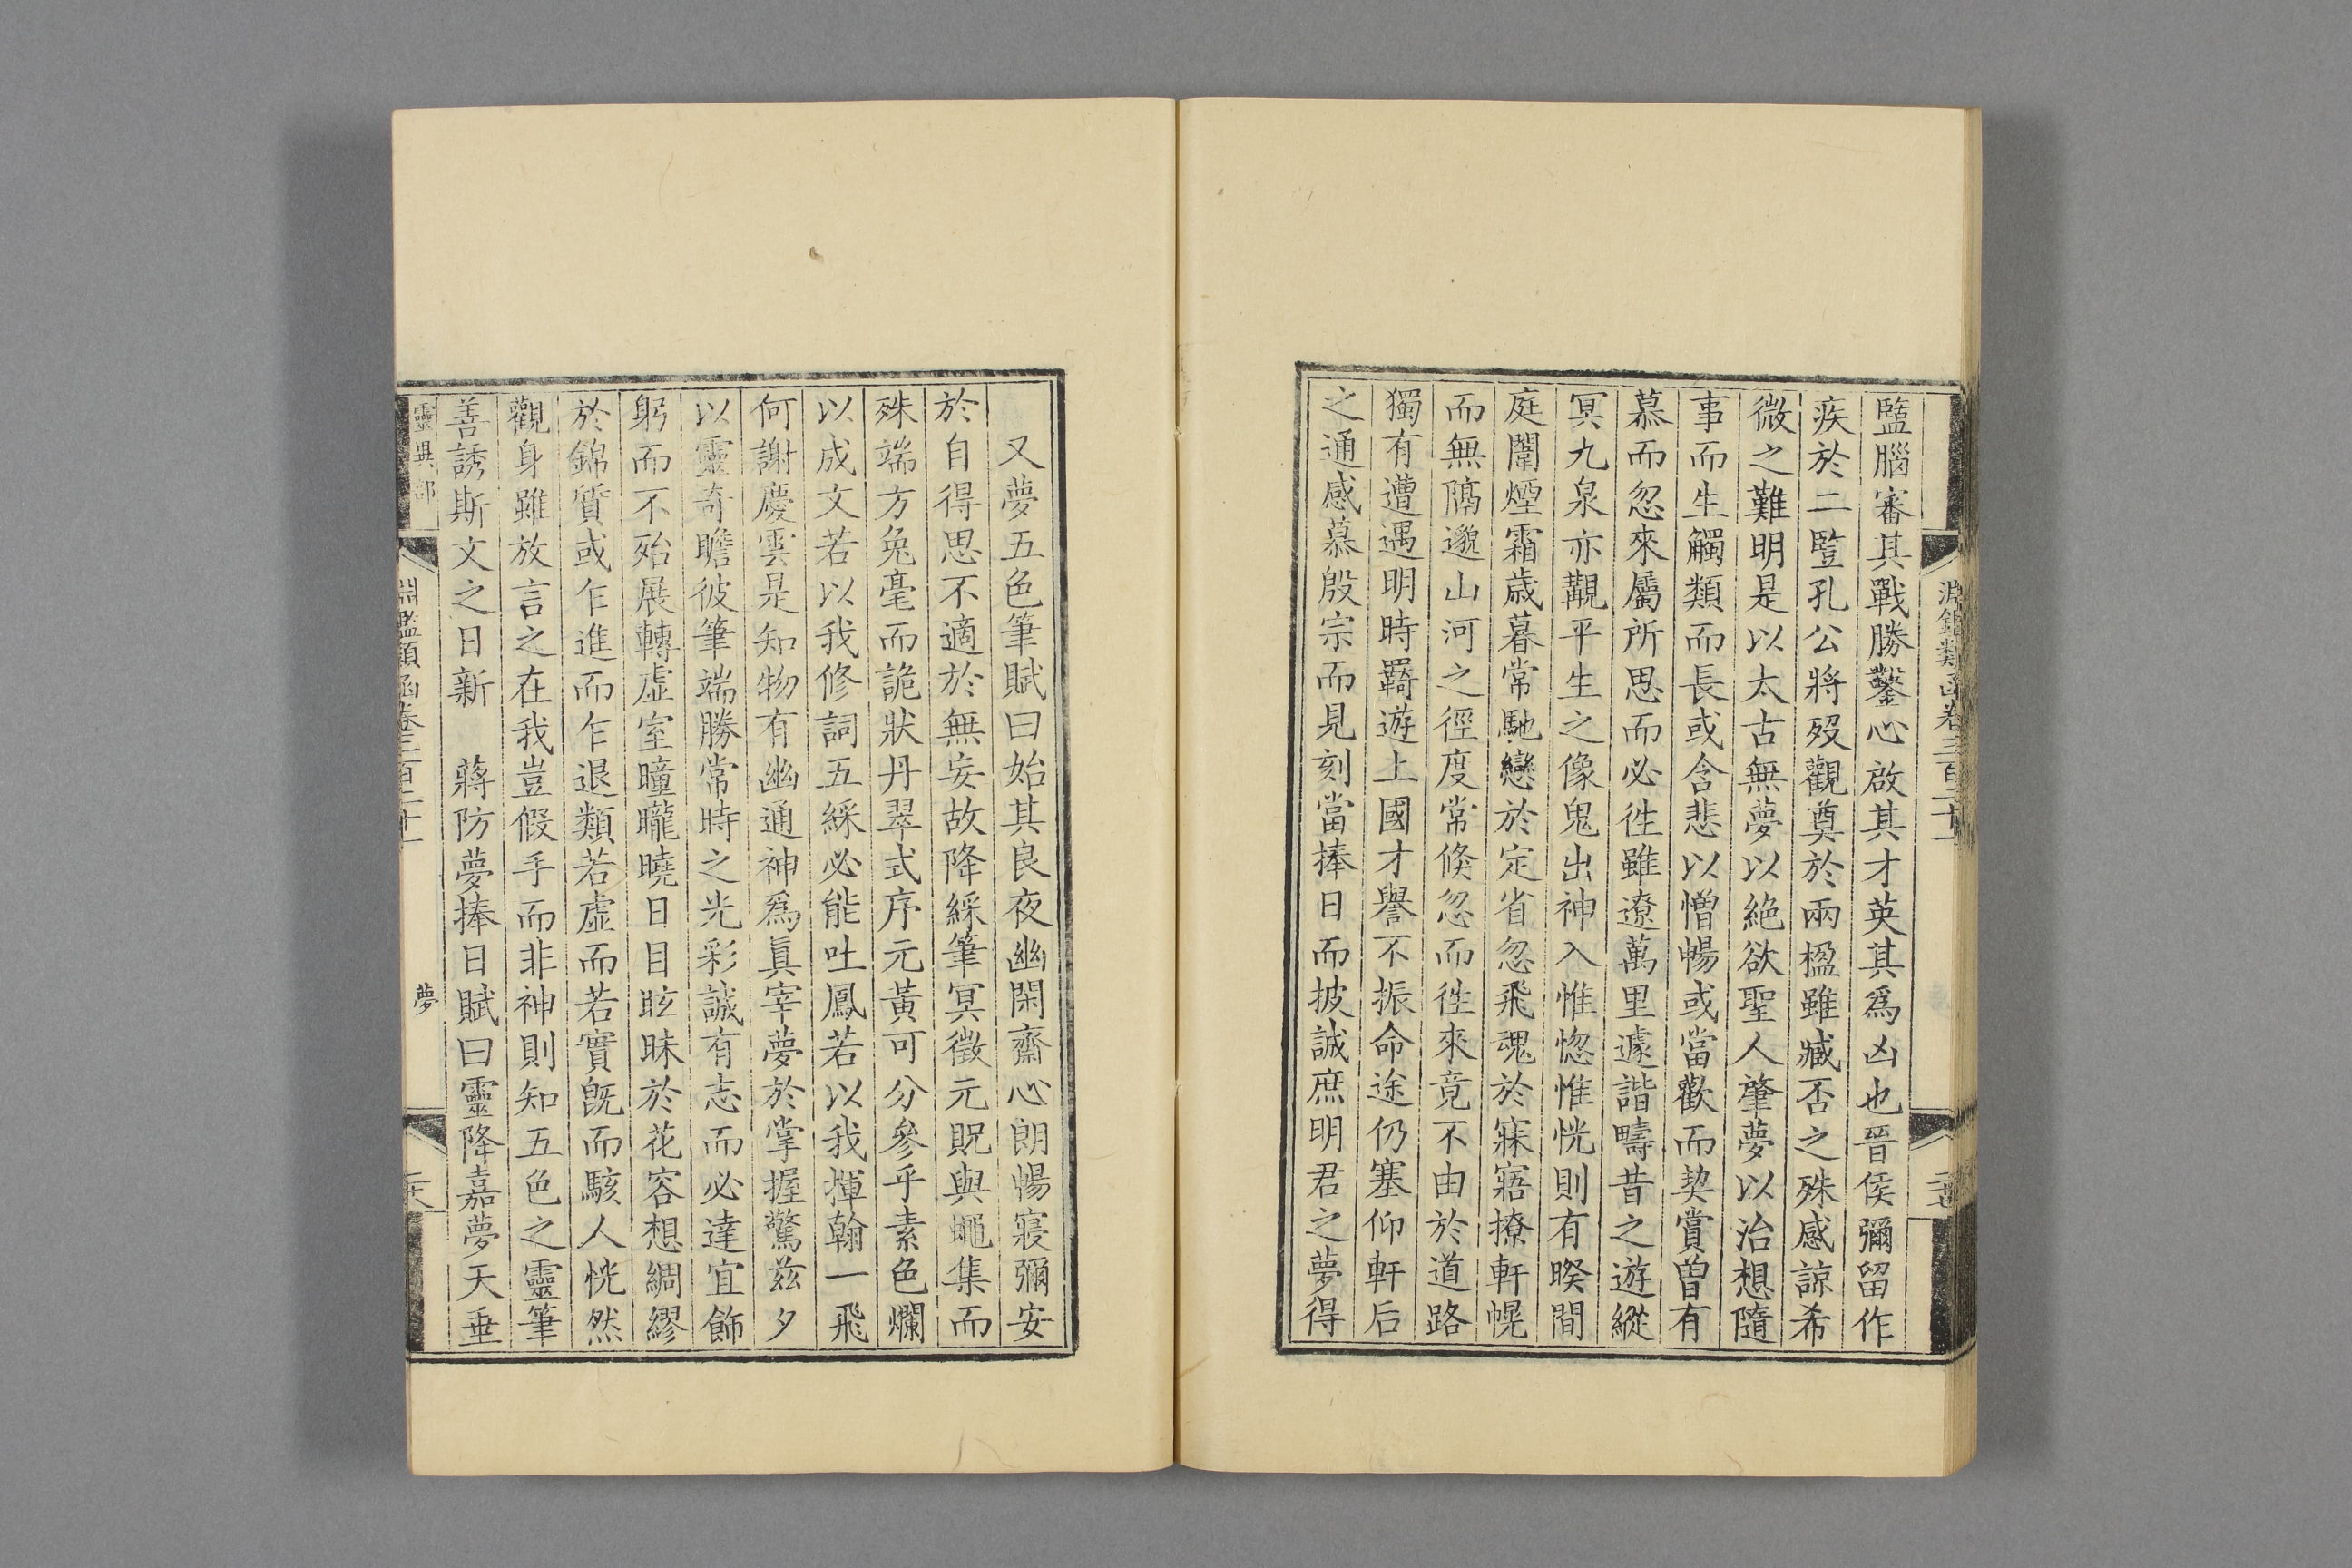 淵鑑類函卷三百二十一
監腦審其戰勝鑿心啟其才英其爲凶也晉侯彌留作
疾於二豎孔公將歿觀奠於兩楹雖臧否之殊感諒希
微之難明是以太古無夢以絶欲聖人肇夢以治想隨
事而生觸類而長或含悲以憎暢或當歡而契賞曾有
慕而忽來屬所思而必徃雖遼萬里遽諧疇昔之遊縱
冥九泉亦覩平生之像鬼出神入惟惚惟恍則有暌間
庭闈煙霜歲暮常馳戀於定省忽飛魂於寐寤撩軒幌
而無隔邈山河之徑度常倏忽而徃來竟不由於道路
獨有遭遇明時羇遊上國才譽不振命途仍塞仰軒后
之通感慕殷宗而見刻當捧日而披誠庶明君之夢得
又夢五色筆賦曰始其良夜幽閑齋心朗暢寢彌安
於自得思不適於無妄故降綵筆冥徵元貺與蠅集而
殊端方兔毫而詭狀丹翠式序元黃可分參乎素色爛
以成文若以我修詞五綵必能吐鳳若以我揮翰一飛
何謝慶雲是知物有幽通神爲眞宰夢於掌握驚兹夕
以靈奇瞻彼筆端勝常時之光彩誠有志而必達宜飾
躬而不殆展轉虛室曈曨曉日目眩昧於花容想綢繆
於錦質或乍進而乍退類若虛而若實旣而駭人恍然
觀身雖放言之在我豈假手而非神則知五色之靈筆
善誘斯文之日新　蔣防夢捧日賦曰靈降嘉夢天垂
靈異部　淵鑑類函卷三百二十一　夢　二十八